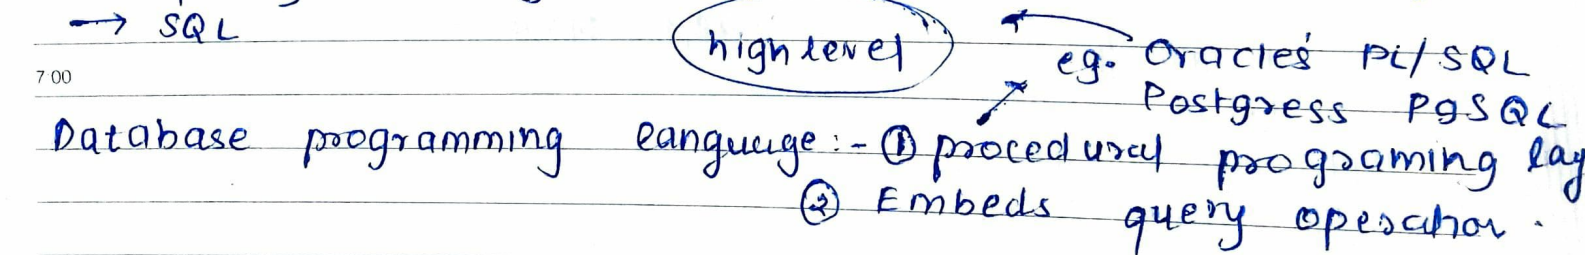 → SQL
high level
eg. Oracle's PL/SQL
7 00
Postgress PgSQL
Database programming language :- ① procedural programing lag
② Embeds query operation.